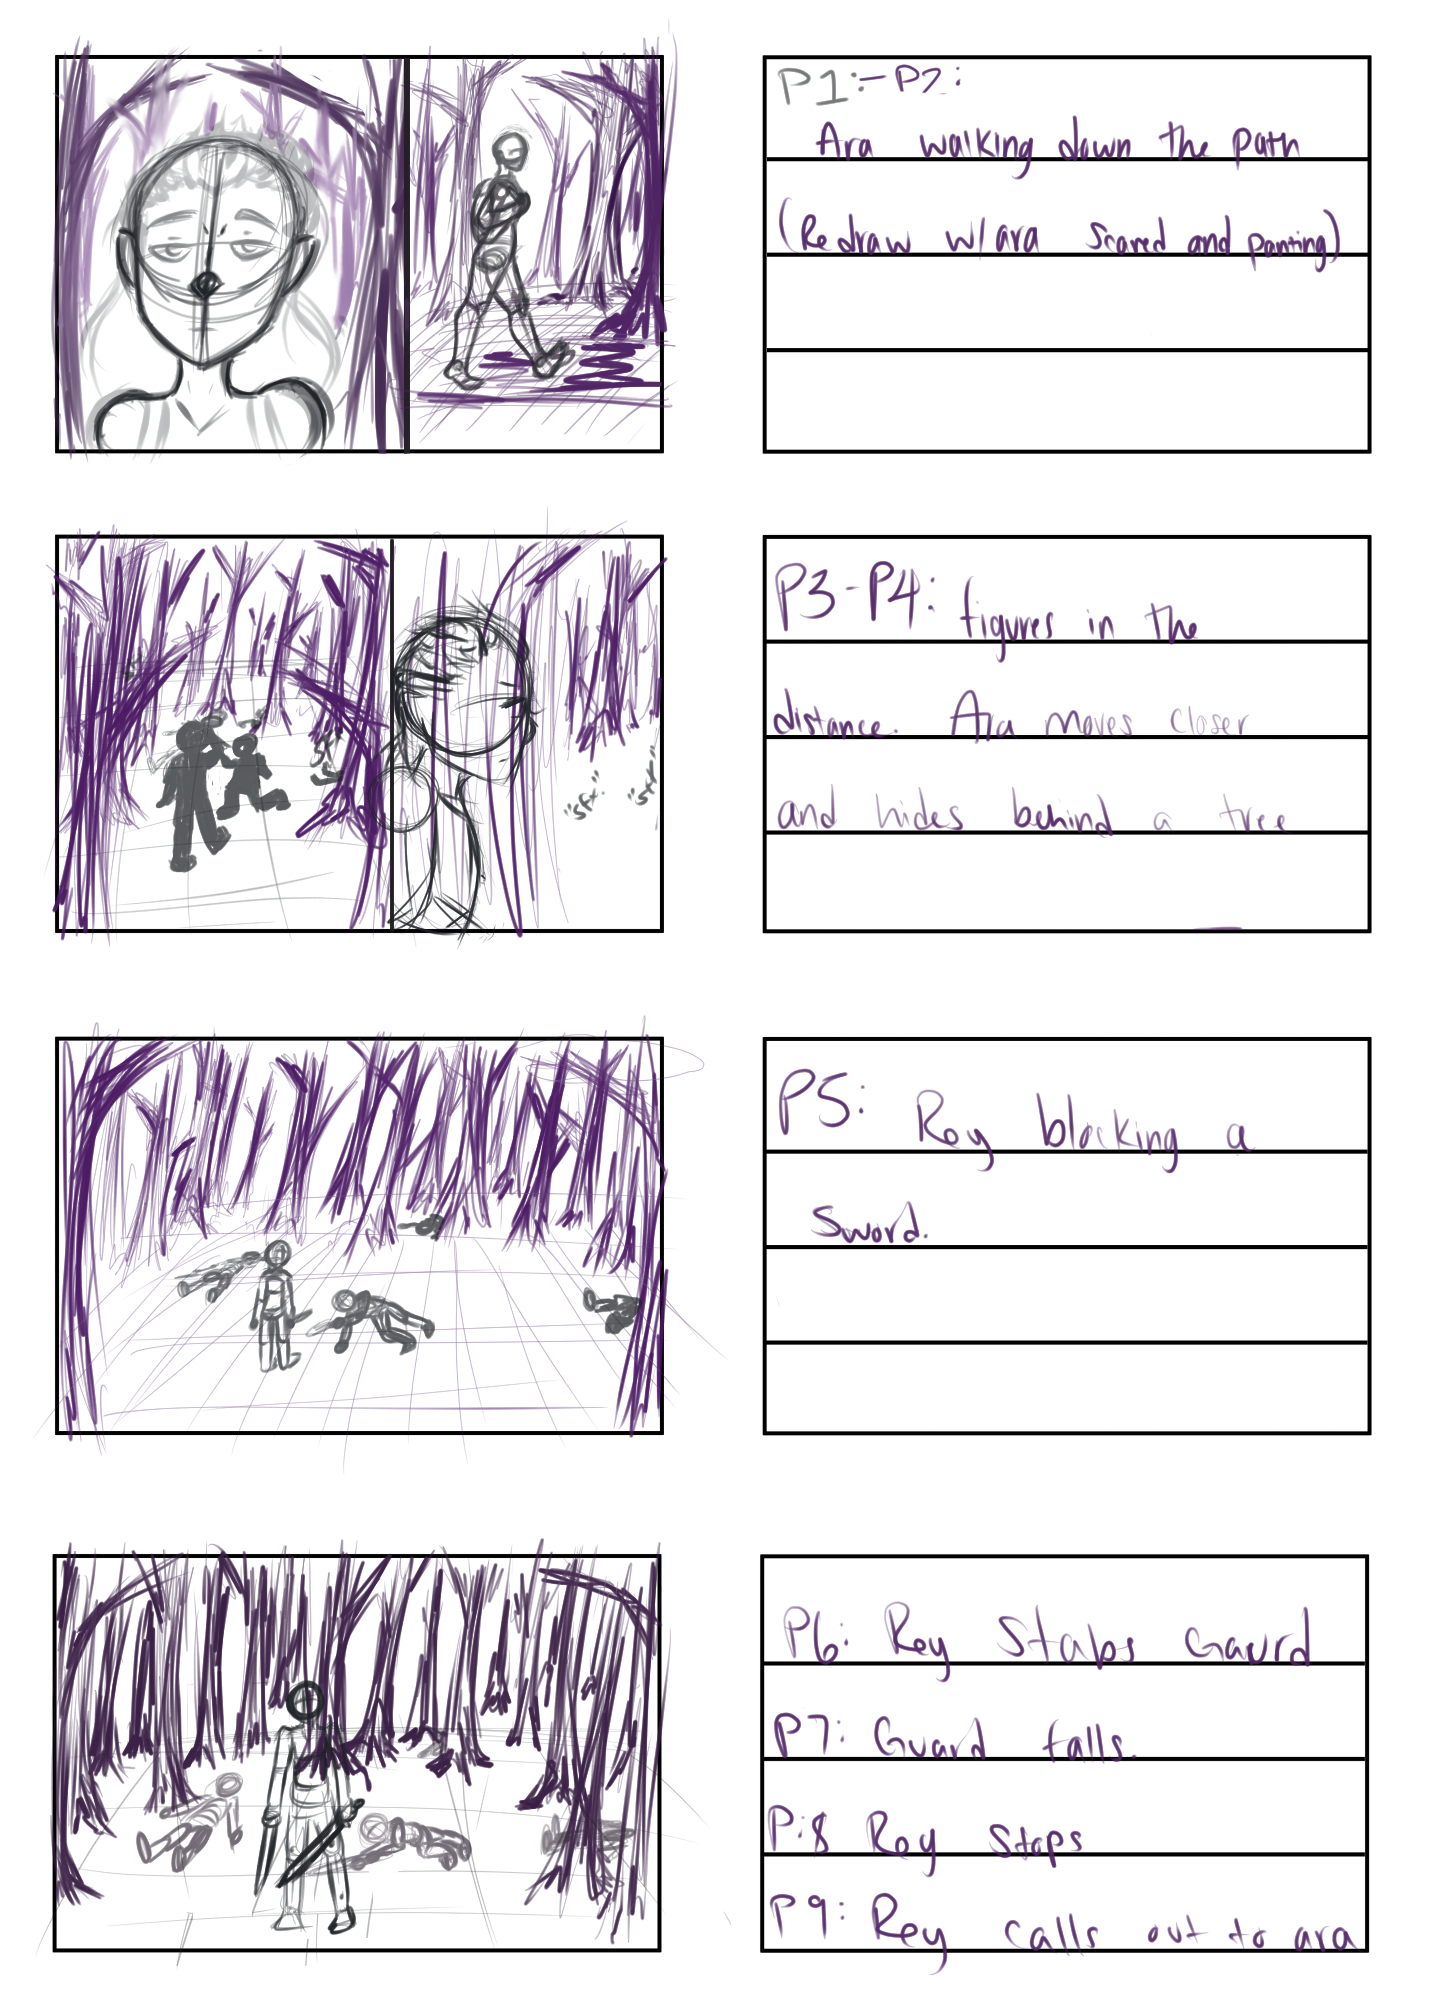 P1:-P2:
Ara walking down the path
(Redraw w/ ara scared and panting)
P3-P4: figures in the
distance. Ara moves closer
and hides behind a tree
sfx
"sfx"
"sfx"
P5: Rey blocking a
Sword.
P6: Rey Stabs Gaurd
P7: Guard falls.
P:8 Rey Stops
P9: Rey calls out to ara